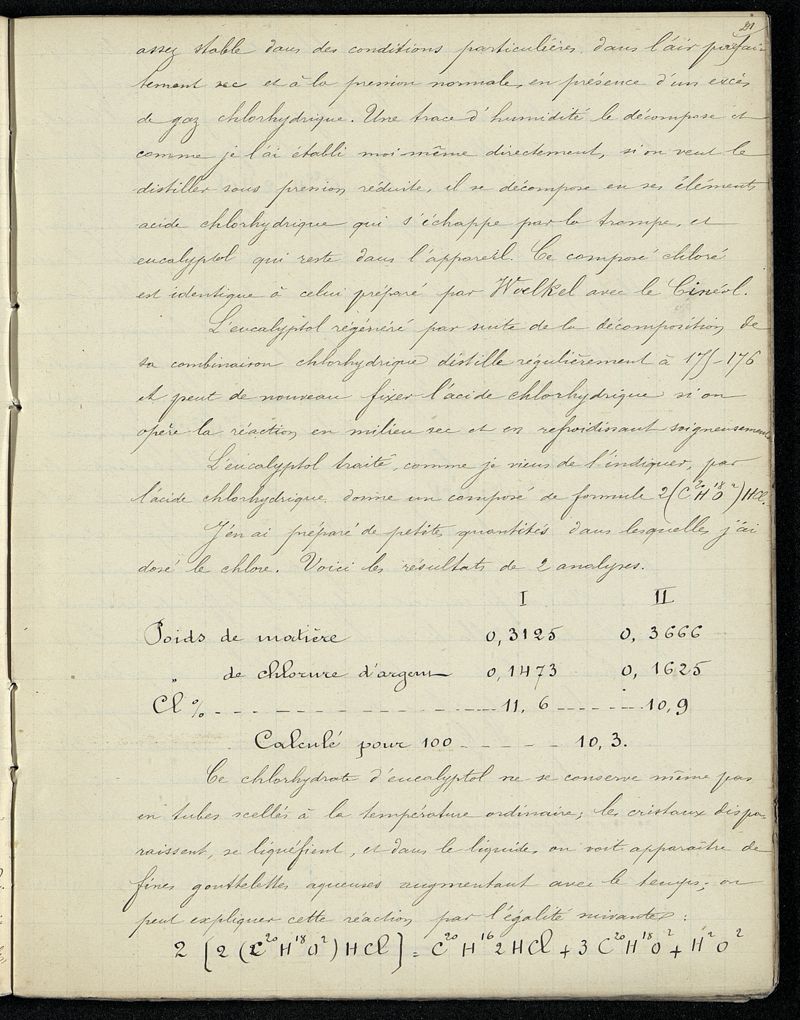 21
assez stable dans des conditions particulières, dans l'air parfai-
tement sec et à la pression normale, en présence d'un excès
de gaz chlorhydrique. Une trace d'humidité le décompose et
comme je l'ai établi moi même directement, si on veut le
distiller sous pression réduite, il se décompose en ses éléments
acide chlorhydrique qui s'échappe par la trompe, et
eucalyptol qui reste dans l'appareil. Ce composé chloré
est identique à celui préparé par Woelkel avec le Cinéol.
L'eucalyptol régénéré par suite de la décomposition de
sa combinaison chlorhydrique distille régulièrement à 175-176
et peut de nouveau fixer l'acide chlorhydrique si on
opère la réaction en milieu sec et en refroidissant soigneusement.
L'eucalyptol traité, comme je viens de l'indiquer, par
l'acide chlorhydrique donne un composé de formule 2(C²⁰H¹⁸O²)HCl.
J'en ai préparé de petites quantités dans lesquelles j'ai
dosé le chlore. Voici les résultats de 2 analyses.
I II
Poids de matière 0,3125 0,3666
" de chlorure d'argent 0,1473 0,1625
Cl % - - - - - - - - - - - - - 11,6 - - - - - - 10,9
Calculé pour 100 - - - - - 10,3.
Ce chlorhydrate d'eucalyptol ne se conserve même pas
en tubes scellés à la température ordinaire; les cristaux dispa-
raissent, se liquéfient, et dans le liquide, on voit apparaître de
fines gouttelettes aqueuses augmentant avec le temps; on
peut expliquer cette réaction par l'égalité suivante:
2 [2 (C²⁰H¹⁸O²) HCl] = C²⁰H¹⁶2HCl + 3C²⁰H¹⁸O² + H²O²